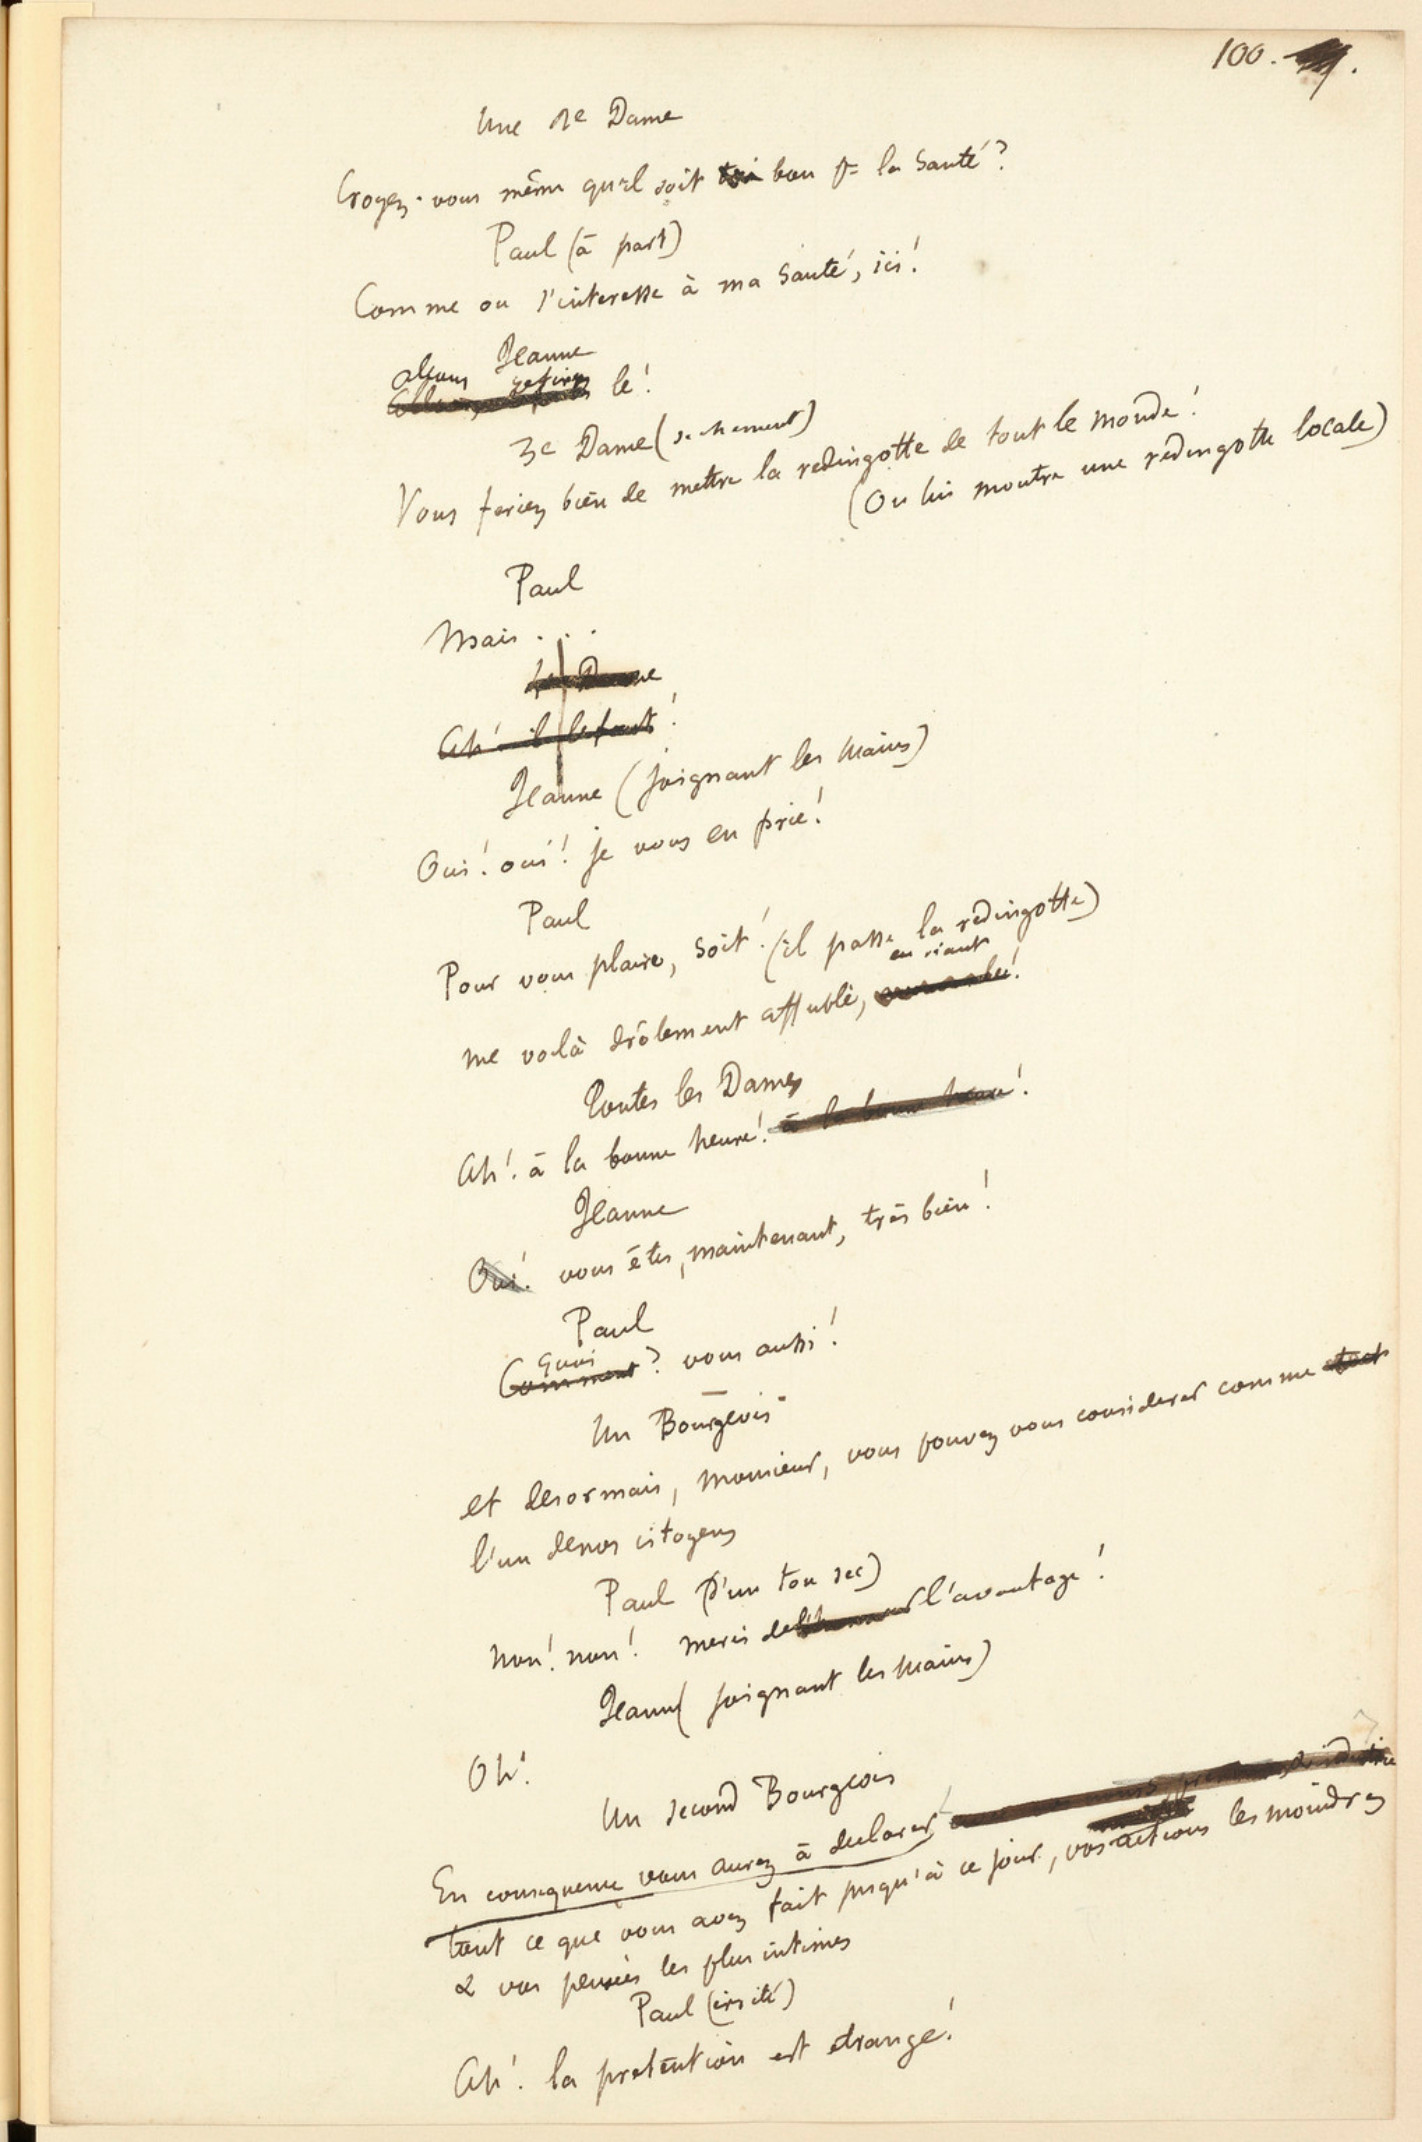 100.
Une 2e Dame
Croyez-vous même qu'il soit bon pr la Santé?
Paul (à part)
Comme on s'interesse à ma Santé, ici!
Jeanne
allons retirez
le!
3e Dame (sechement)
Vous feriez bien de mettre la redingotte de tout le monde!
(On lui montre une redingotte locale)
Paul
Mais . . .
La Dame
Ah! il le faut!
Jeanne (joignant les mains)
Oui! oui! je vous en prie!
Paul
Pour vous plaire, soit! (il passe la redingotte)
en riant
me voilà drôlement affublé,
Toutes les Dames
Ah! à la bonne heure! à la bonne heure!
Jeanne
Oui! vous êtes, maintenant, très bien!
Paul
Quoi
Comment? vous aussi!
Un Bourgeois
et desormais, monsieur, vous pouvez vous considerer comme tout
l'un de nos citoyens
Paul (d'un ton sec)
Non! non! merci de l'honneur l'avantage!
Jeanne (joignant les mains)
Oh!
Un second Bourgeois
En consequence vous aurez à declarer
tout ce que vous avez fait jusqu'à ce jour, vos actions les moindres
& vos pensées les plus intimes
Paul (irrité)
Ah! la pretention est etrange!